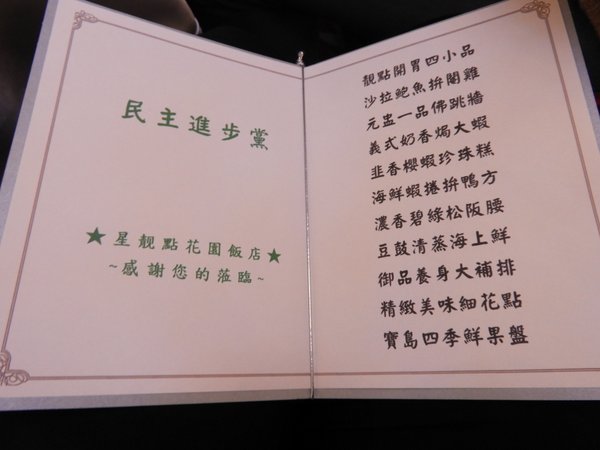 民主進步黨
★星靚點花園飯店★
~感謝您的蒞臨~
靚點開胃四小品
沙拉鮑魚拚閹雞
元盅一品佛跳牆
義式奶香焗大蝦
韭香櫻蝦珍珠糕
海鮮蝦捲拚鴨方
濃香碧綠松阪腰
豆鼓清蒸海上鮮
御品養身大補排
精緻美味細花點
寶島四季鮮果盤